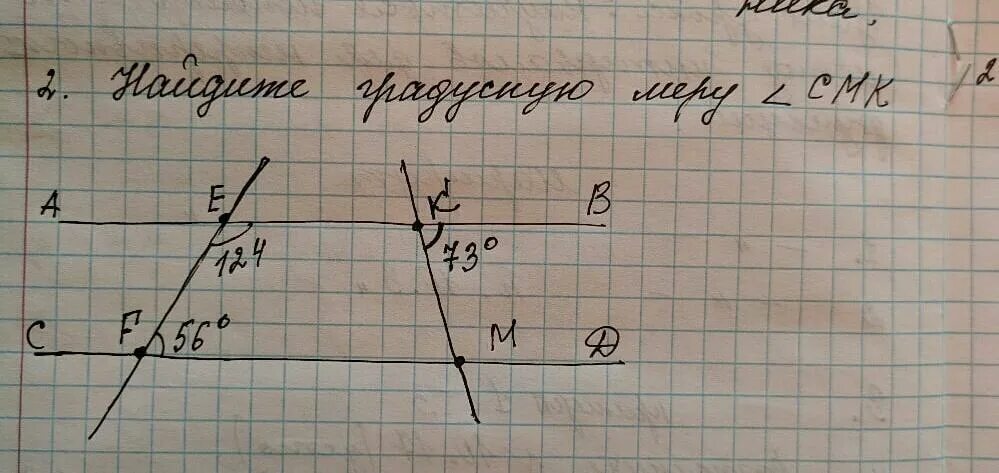 ника.
2. Найдите градусную меру ∠ CMK
2
A E K B
124 73°
C F 56° M D
3.